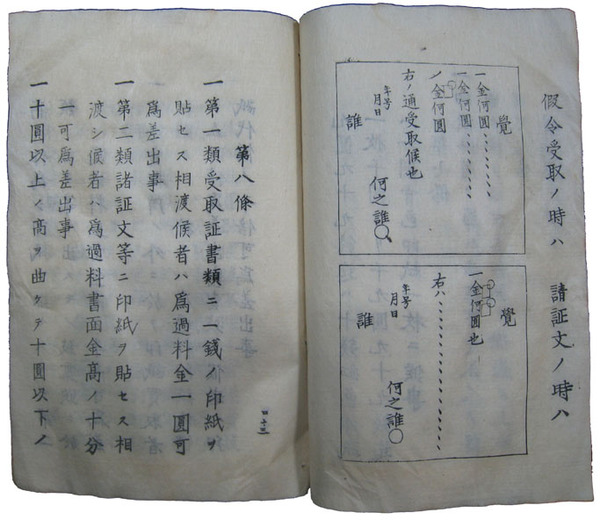 假令受取ノ時ハ 請証文ノ時ハ
覺
一金何圓、、、、、、
一金何圓、、、、、、
〆金何圓
右ノ通受取候也
年号
月日 何之誰〇
誰
覺
一金何圓也
右ハ、、、、、、、、、、
年号
月日 何之誰〇
誰
四十三
第八條
一 第一類受取証書類ニ一錢ノ印紙ヲ
貼セス相渡候者ハ爲過料金一圓可
爲差出事
一 第二類諸証文等ニ印紙ヲ貼セス相
渡シ候者ハ爲過料書面金高ノ十分
一可爲差出事
一 十圓以上ノ高ヲ曲ケテ十圓以下ノ